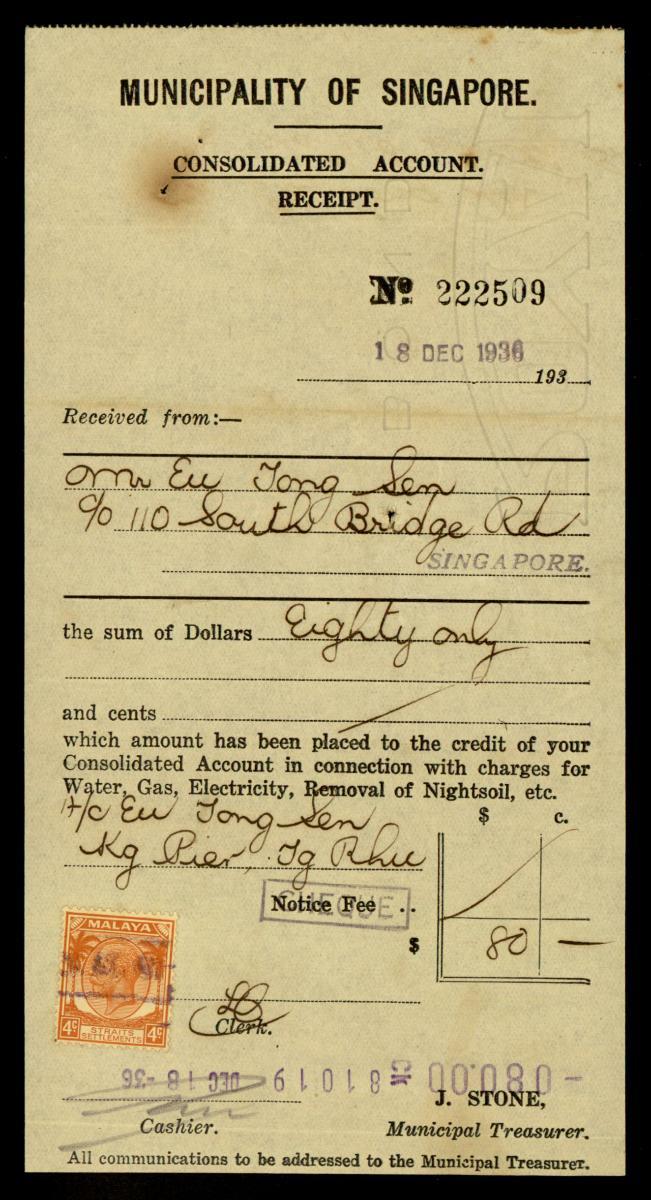 MUNICIPALITY OF SINGAPORE.
CONSOLIDATED ACCOUNT.
RECEIPT.
No. 222509
18 DEC 1936
193
Received from:—
Mr Eu Tong Sen
c/o 110 South Bridge Rd
SINGAPORE.
the sum of Dollars Eighty only
and cents
which amount has been placed to the credit of your
Consolidated Account in connection with charges for
Water, Gas, Electricity, Removal of Nightsoil, etc.
A/c Eu Tong Sen
$ c.
Kg Pier, Tg Rhu
CHEQUE
Notice Fee ..
$ 80 —
MALAYA
4c STRAITS SETTLEMENTS 4c
Clerk.
-080.00 CK 81019 DEC 18-36
J. STONE,
Cashier. Municipal Treasurer.
All communications to be addressed to the Municipal Treasurer.